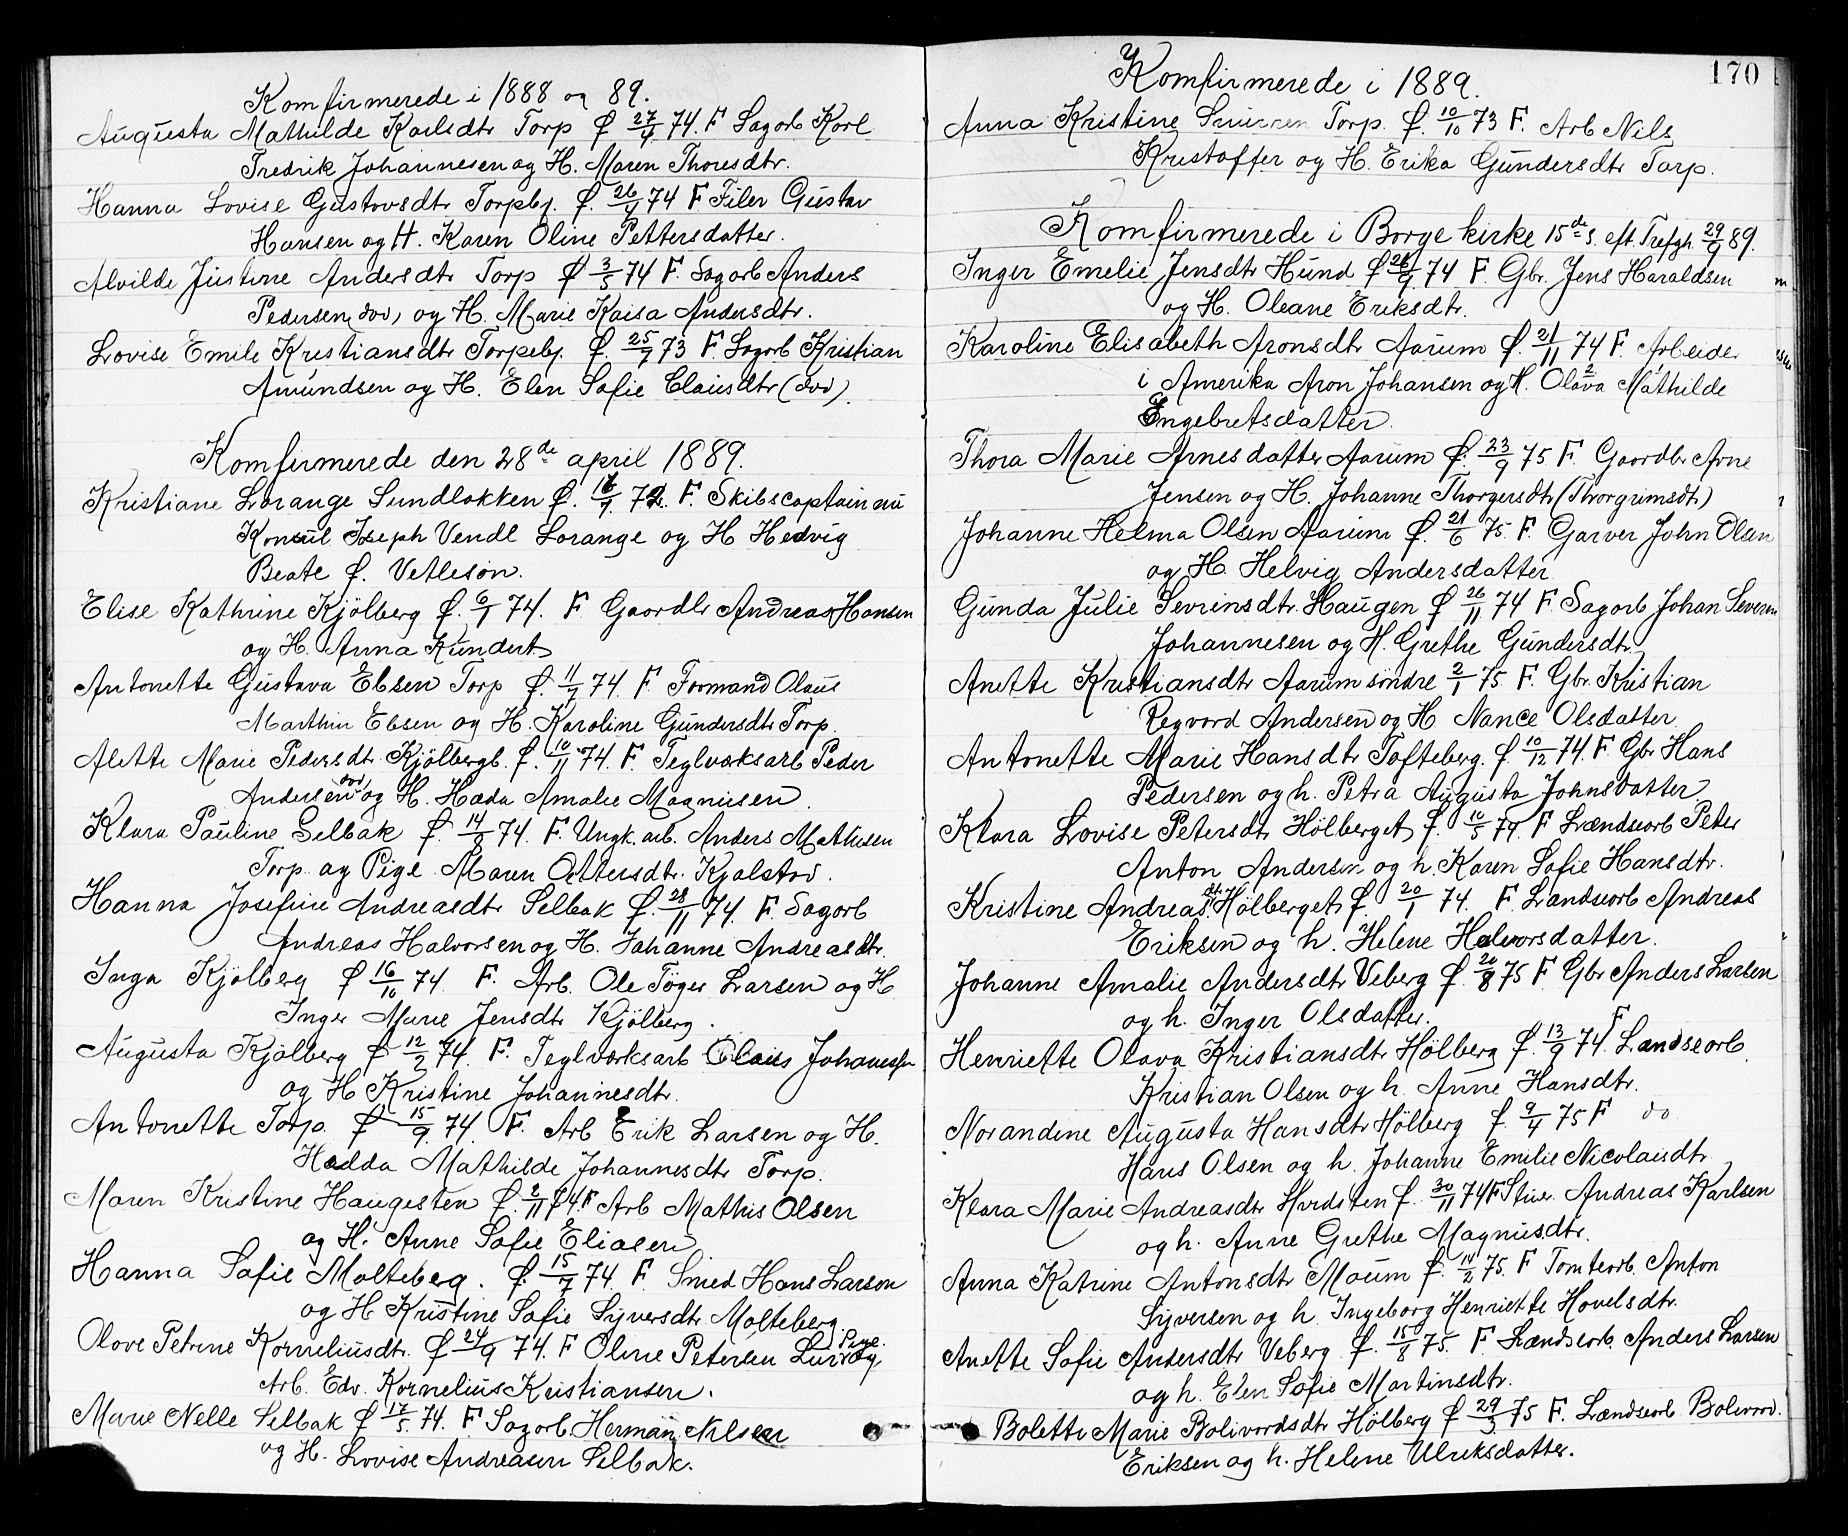 Komfirmerede i 1888 og 89.
Augusta Mathilde Karlsdtr Torp f. 27/4 74. F Sagarb Karl
Fredrik Johannesen og H. Maren Thoresdtr.
Hanna Lovise Gustavsdtr Torpbg. f. 26/4 74 F Filer Gustav
Hansen og H. Karen Oline Pettersdatter.
Alvilde Justine Andersdtr Torp f 3/5 74 F. Sagarb Anders
Pedersen, død, og H. Marie Kaisa Andersdtr.
Lovise Emilie Kristiansdtr Torpebg. f. 25/7 73 F Sagarb Kristian
Amundsen og H. Elen Sofie Clausdtr (død).
Komfirmerede den 28de april 1889.
Kristiane Lorange Sundløkken f. 16/9 72. F. Skibscaptain nu
Konsul Joseph Vendl Lorange og H Hedvig
Beate f. Vetleson.
Elise Kathrine Kjölberg f. 6/1 74. F Gaardbr Andreas Hansen
og H. Anna Kundert
Antonette Gustava Ebsen Torp f. 11/7 74. F Formand Olaus
Marthin Ebsen og H. Karoline Gundersdtr Torp.
Alette Marie Pedersdtr Kjölbergb. f. 10/11 74. F. Teglværksarb Peder
Andersen død og H. Hæda Amalie Magnusen.
Klara Pauline Selbak f. 14/8 74. F. Ungk. arb. Anders Mathisen
Torp og Pige Maren Ottersdtr. Kjølstad.
Hanna Josefine Andreasdtr Selbak f. 28/11 74. F. Sagarb
Andreas Halvorsen og H. Johanne Andreasdtr.
Inga Kjölberg f 16/10 74 F. Arb. Ole Töger Larsen og H
Inger Marie Jensdtr Kjölberg.
Augusta Kjölberg f 12/2 74. F. Teglværksarb Claus Johannesen
og H Kristine Johannesdtr.
Antonette Torp. f 15/9 74. F. Arb Erik Larsen og H.
Hedda Mathilde Johannesdtr Torp.
Maren Kristine Haugesten f. 2/11 74. F Arb Mathis Olsen
og H. Anne Sofie Eliasen
Hanna Sofie Molteberg. f. 15/7 74. F Smed Hans Larsen
og H Kristine Sofie Syversdtr Molteberg.
Olave Petrine Korneliusdtr. f 24/9 74. F Oline Petersen Pige.
Arb. Edv. Kornelius Kristiansen.
Marie Nelle Selbak f 17/5 74. F Sagarb. Herman Nilsen
og H. Lovise Andreasen Selbak.
170
Komfirmerede i 1889.
Anna Kristine Torp. f. 10/10 73 F. Arb Nils
Kristoffer og H. Erika Gundersdtr Torp.
Komfirmerede i Borge kirke 15de s. eft. Trefgh. 29/9 89.
Inger Emelie Jensdtr Hund f 26/9 74 F. Gbr. Jens Haraldsen
og H. Oleane Eriksdtr.
Karoline Elisabeth Aronsdtr Aarum f. 21/11 74 F. Arbeider
i Amerika Aron Johansen og H. Olava Mathilde
Engebretsdatter.
Thora Marie Arnesdatter Aarum f. 23/9 75 F. Gaardbr Arne
Jensen og H. Johanne Thorgersdtr (Thorgrimsdtr)
Johanne Helma Olsen Aarum f. 21/6 75 F. Garver John Olsen
og H. Helvig Andersdatter
Gunda Julie Sevrinsdtr. Haugen f 26/11 74 F Sagarb Johan Severin
Johannesen og H. Grethe Gundersdtr
Anette Kristiansdtr Aarum söndre 2/1 75 F. Gbr Kristian
Regvard Andersen og H Nance Olsdatter.
Antonette Marie Hansdtr Tofteberg. f 10/12 74. F Gbr Hans
Pedersen og h. Petra Augusta Johnsdatter
Klara Lovise Petersdtr Hölberget f. 10/5 74. F Lændsearb Peter
Anton Andersen og h. Karen Sofie Hansdtr.
Kristine Andreasdt. Hölberget f. 20/1 74. F. Landsearb Andreas
Eriksen og h. Helene Halvorsdatter.
Johanne Amalie Andersdtr Veberg f. 20/8 75 F Gbr Anders Larsen
og h. Inger Olsdatter.
Henriette Olava Kristiansdtr Hölberg f. 13/9 74. F Landsearb.
Kristian Olsen og h. Anne Hansdtr.
Norandine Augusta Hansdtr Hölberg f. 9/4 75 F do
Hans Olsen og h. Johanne Emilie Nicolaisdtr
Klara Marie Andreasdtr Hvidsten f. 30/11 74 F Stuer. Andreas Karlsen
og h. Anne Grethe Magnusdtr.
Anna Katrine Antonsdtr Moum f. 14/2 75. F Tomtearb. Anton
Syversen og h. Ingeborg Henriette Hovelsdtr.
Anette Sofie Andersdtr Veberg f. 15/8 75. F Lændsearb. Anders Larsen
og h. Elen Sofie Martinsdtr.
Bolette Marie Bolivardsdtr Hölberg f 29/3 75 F. Lændsearb Bolivard.
Eriksen og h. Helene Ulriksdatter.